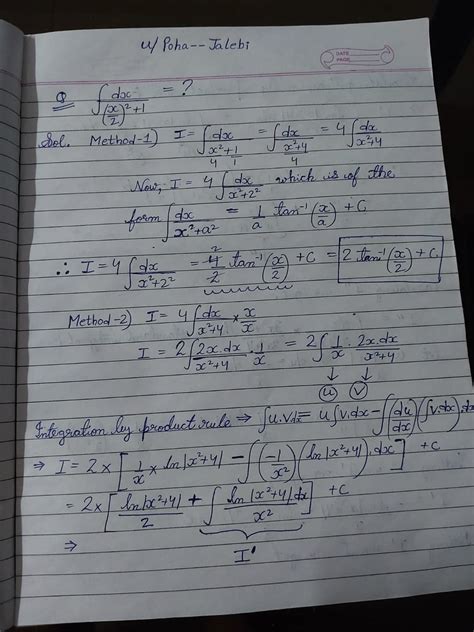 u/Poha--Jalebi
DATE
PAGE
Q ∫ dx/((x/2)²+1) = ?
Sol. Method-1) I = ∫ dx/(x²/4 + 1/1) = ∫ dx/((x²+4)/4) = 4∫ dx/(x²+4)
Now, I = 4∫ dx/(x²+2²) which is of the
form ∫ dx/(x²+a²) = 1/a tan⁻¹(x/a) + C
∴ I = 4∫ dx/(x²+2²) = 4/2 tan⁻¹(x/2) + C = 2 tan⁻¹(x/2) + C
Method-2) I = 4∫ dx/(x²+4) × x/x
I = 2∫ 2x.dx/(x²+4) · 1/x = 2∫ 1/x · 2x.dx/(x²+4)
u v
Integration by product rule ⇒ ∫u.v dx = u∫v.dx − ∫(du/dx)(∫v.dx).dx
⇒ I = 2×[1/x × ln|x²+4| − ∫(−1/x²)(ln|x²+4|).dx] + C
= 2×[ln|x²+4|/2 + ∫ ln|x²+4|dx/x²] + C
⇒ I'